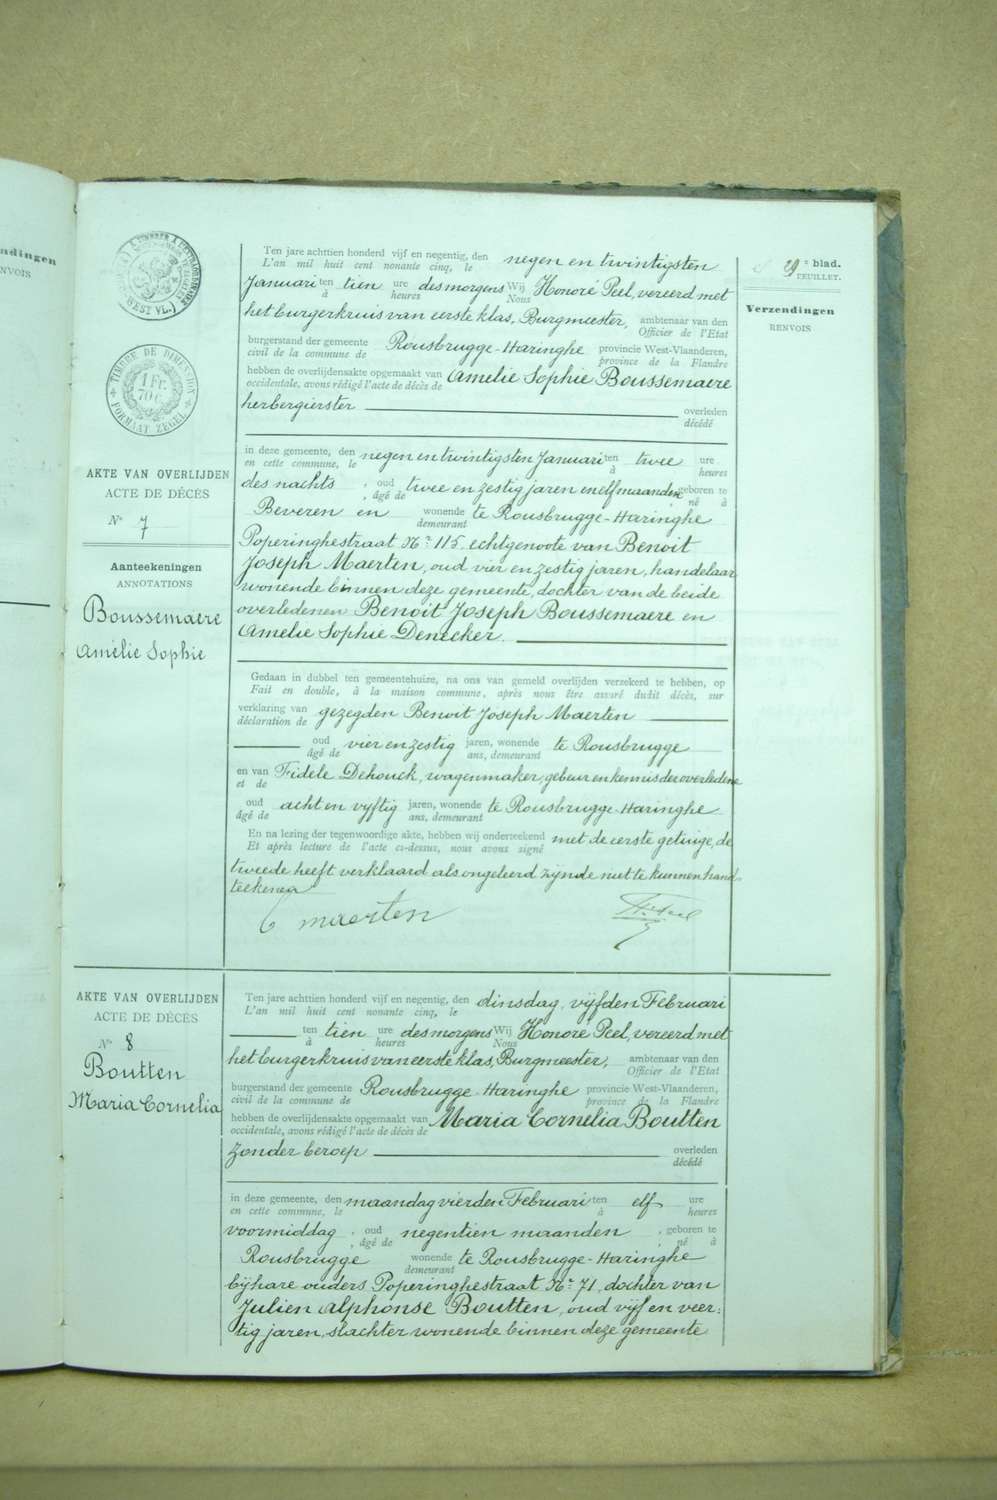 ndingen
NVOIS
29e blad.
FEUILLET.
Verzendingen
RENVOIS
WEST VL.
TIMBRE DE DIMENSION
1 Fr.
70 C.
FORMAAT ZEGEL
AKTE VAN OVERLIJDEN
ACTE DE DÉCÈS
No 7
Aanteekeningen
ANNOTATIONS
Boussemaere
Amélie Sophie
Ten jare achttien honderd vijf en negentig, den negen en twintigsten
L'an mil huit cent nonante cinq, le
Januari ten tien ure des morgens Wij Honoré Peel, vereerd met
à heures Nous
het burgerkruis van eerste klas, Burgmeester, ambtenaar van den
Officier de l'Etat
burgerstand der gemeente Rousbrugge-Haringhe provincie West-Vlaanderen,
civil de la commune de province de la Flandre
hebben de overlijdensakte opgemaakt van Amelie Sophie Boussemaere
occidentale, avons rédigé l'acte de décès de
herbergierster overleden
décédé
in deze gemeente, den negen en twintigsten Januari ten twee ure
en cette commune, le à heures
des nachts, oud twee en zestig jaren en elf maanden, geboren te
, âgé de , né à
Beveren en wonende te Rousbrugge-Haringhe
demeurant
Poperinghestraat No 115, echtgenoote van Benoit
Joseph Maerten, oud vier en zestig jaren, handelaar
wonende binnen deze gemeente, dochter van de beide
overledenen Benoit Joseph Boussemaere en
Amelie Sophie Denecker.
Gedaan in dubbel ten gemeentehuize, na ons van gemeld overlijden verzekerd te hebben, op
Fait en double, à la maison commune, après nous être assuré dudit décès, sur
verklaring van gezegden Benoit Joseph Maerten
déclaration de
oud vier en zestig jaren, wonende te Rousbrugge
âgé de ans, demeurant
en van Fidele Dehouck, wagenmaker, gebuur en kennis der overledene
et de
oud acht en vyftig jaren, wonende te Rousbrugge-Haringhe
âgé de ans, demeurant
En na lezing der tegenwoordige akte, hebben wij onderteekend met de eerste getuige, de
Et après lecture de l'acte ci-dessus, nous avons signé
tweede heeft verklaard als ongeleerd zijnde niet te kunnen hand-
teekenen
maerten
AKTE VAN OVERLIJDEN
ACTE DE DÉCÈS
No 8
Boutten
Maria Cornelia
Ten jare achttien honderd vijf en negentig, den dinsdag, vijfden Februari
L'an mil huit cent nonante cinq, le
ten tien ure des morgens Wij Honoré Peel, vereerd met
à heures Nous
het burgerkruis van eerste klas, Burgmeester, ambtenaar van den
Officier de l'Etat
burgerstand der gemeente Rousbrugge-Haringhe provincie West-Vlaanderen,
civil de la commune de province de la Flandre
hebben de overlijdensakte opgemaakt van Maria Cornelia Boutten
occidentale, avons rédigé l'acte de décès de
zonder beroep overleden
décédé
in deze gemeente, den maandag vierden Februari ten elf ure
en cette commune, le à heures
voormiddag, oud negentien maanden, geboren te
, âgé de , né à
Rousbrugge wonende te Rousbrugge-Haringhe
demeurant
bij hare ouders Poperinghestraat No 71, dochter van
Julien Alphonse Boutten, oud vijf en veer-
tig jaren, slachter wonende binnen deze gemeente